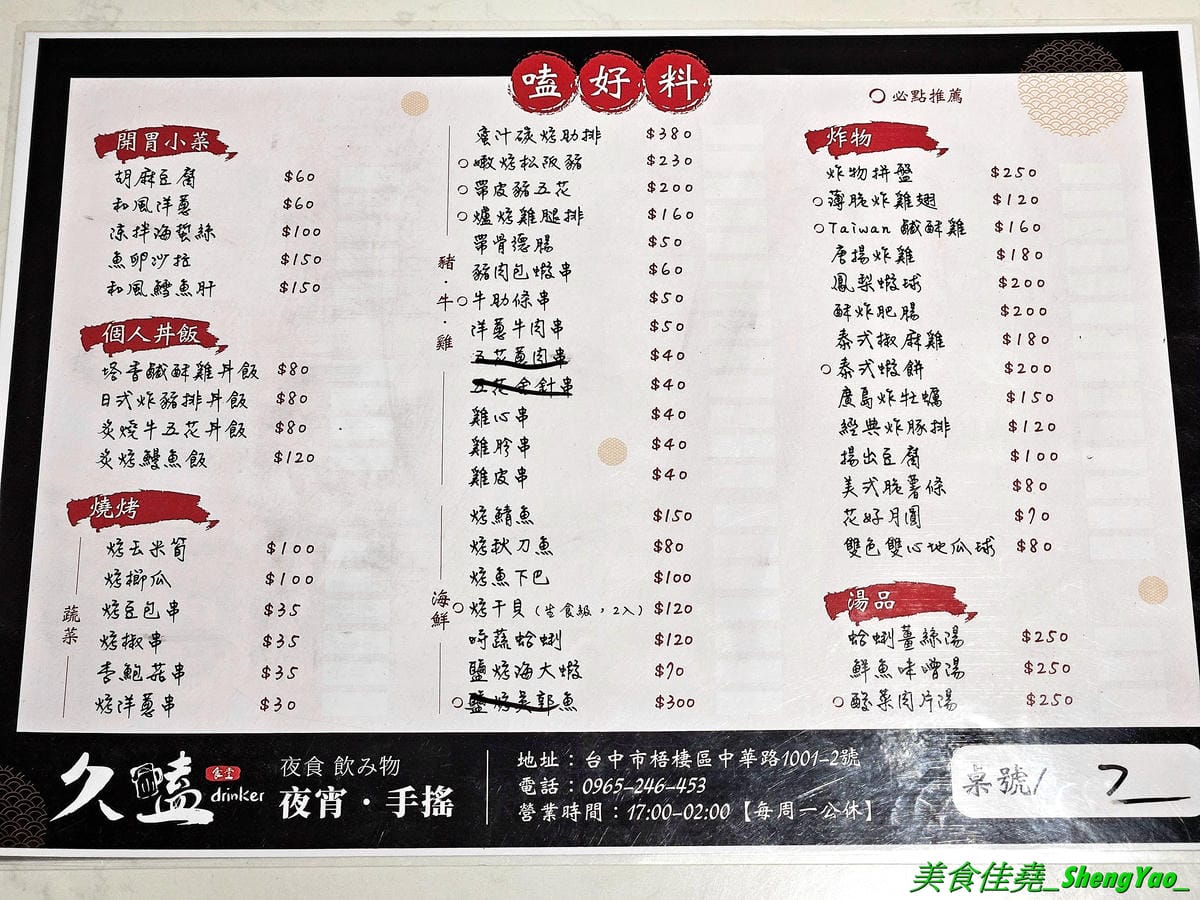 嗑好料
○必點推薦
開胃小菜
胡麻豆腐 $60
和風洋蔥 $60
涼拌海蜇絲 $100
魚卵沙拉 $150
和風鱈魚肝 $150
個人丼飯
塔香鹹酥雞丼飯 $80
日式炸豬排丼飯 $80
炙燒牛五花丼飯 $80
炙烤鰻魚飯 $120
燒烤
蔬菜
烤玉米筍 $100
烤櫛瓜 $100
烤豆包串 $35
烤椒串 $35
杏鮑菇串 $35
烤洋蔥串 $30
豬·牛·雞
蜜汁碳烤肋排 $380
○嫩烤松阪豬 $230
○帶皮豬五花 $200
○爐烤雞腿排 $160
帶骨德腸 $50
豬肉包蝦串 $60
○牛肋條串 $50
洋蔥牛肉串 $50
五花蔥肉串 $40
五花金針串 $40
雞心串 $40
雞胗串 $40
雞皮串 $40
海鮮
烤鯖魚 $150
烤秋刀魚 $80
烤魚下巴 $100
○烤干貝（生食級，2入） $120
時蔬蛤蜊 $120
鹽烤海大蝦 $70
○鹽烤吳郭魚 $300
炸物
炸物拼盤 $250
○薄脆炸雞翅 $120
○Taiwan鹹酥雞 $160
唐揚炸雞 $180
鳳梨蝦球 $200
酥炸肥腸 $200
泰式椒麻雞 $180
○泰式蝦餅 $200
廣島炸牡蠣 $150
經典炸豚排 $120
揚出豆腐 $100
美式脆薯條 $80
花好月圓 $70
雙色雙心地瓜球 $80
湯品
蛤蜊薑絲湯 $250
鮮魚味噌湯 $250
○酸菜肉片湯 $250
久嗑 食堂 drinker
夜食 飲み物
夜宵·手搖
地址：台中市梧棲區中華路1001-2號
電話：0965-246-453
營業時間：17:00-02:00【每周一公休】
桌號/ 7
美食佳堯_ShengYao_